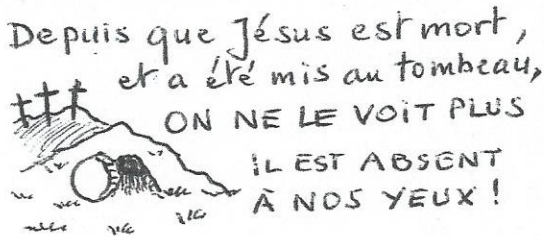 Depuis que Jésus est mort,
et a été mis au tombeau,
ON NE LE VOIT PLUS
IL EST ABSENT
À NOS YEUX !